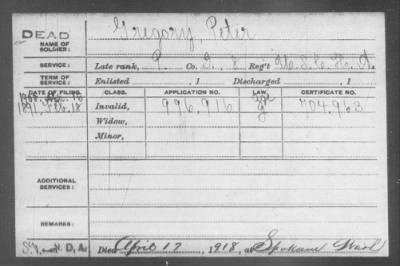 DEAD
NAME OF SOLDIER: Gregory, Peter
SERVICE: Late rank, P Co. I, 8 Reg't U.S.C.H.A.
TERM OF SERVICE: Enlisted , 1 Discharged , 1
DATE OF FILING. CLASS. APPLICATION NO. LAW. CERTIFICATE NO.
1891, Feb. 18 Invalid, 996.916 704.963
Widow,
Minor,
ADDITIONAL SERVICES:
REMARKS:
Died April 12, 1918, at Spokane Wash